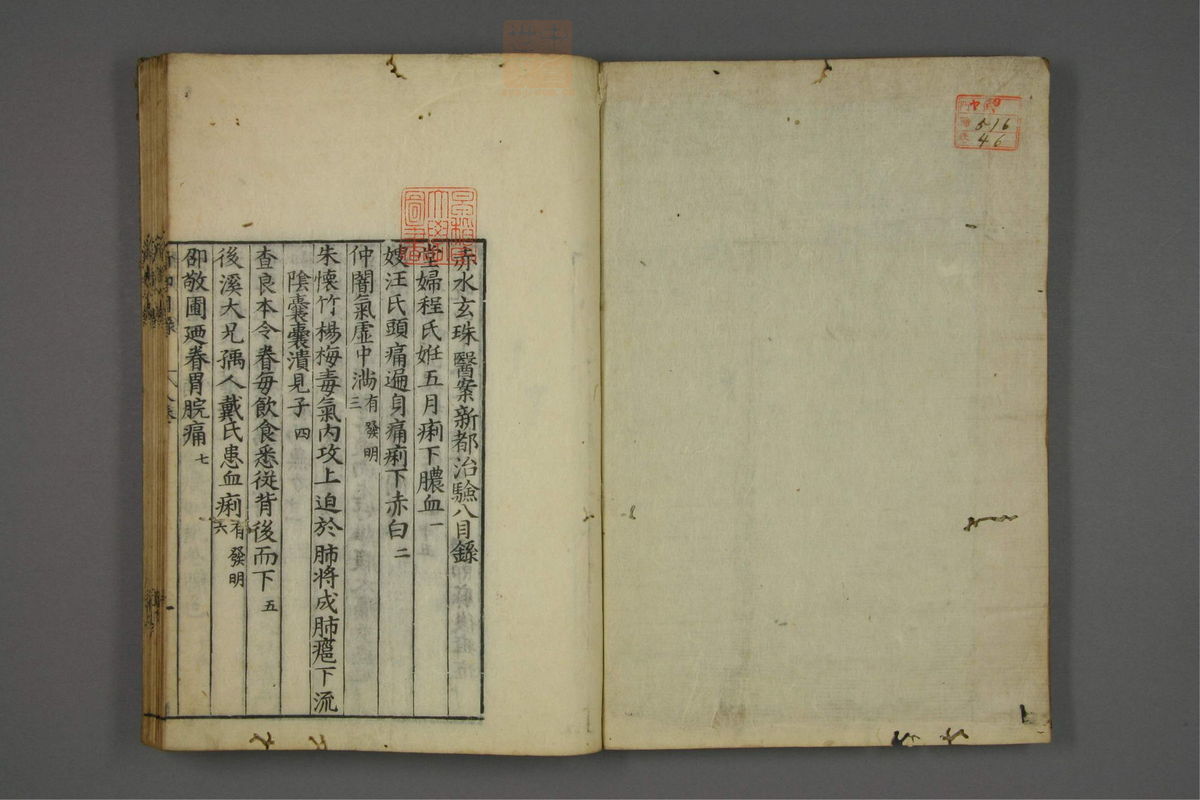 赤水玄珠醫案新都治驗八目錄
堂婦程氏姙五月痢下膿血一
嫂汪氏頭痛遍身痛痢下赤白二
仲闇氣虛中滿有發明三
朱懷竹楊梅毒氣內攻上迫於肺將成肺癰下流
陰囊囊潰見子四
查良本令眷每飲食悉從背後而下五
後溪大兄孺人戴氏患血痢有發明六
邵敬圃廼眷胃脘痛七
5-16
46